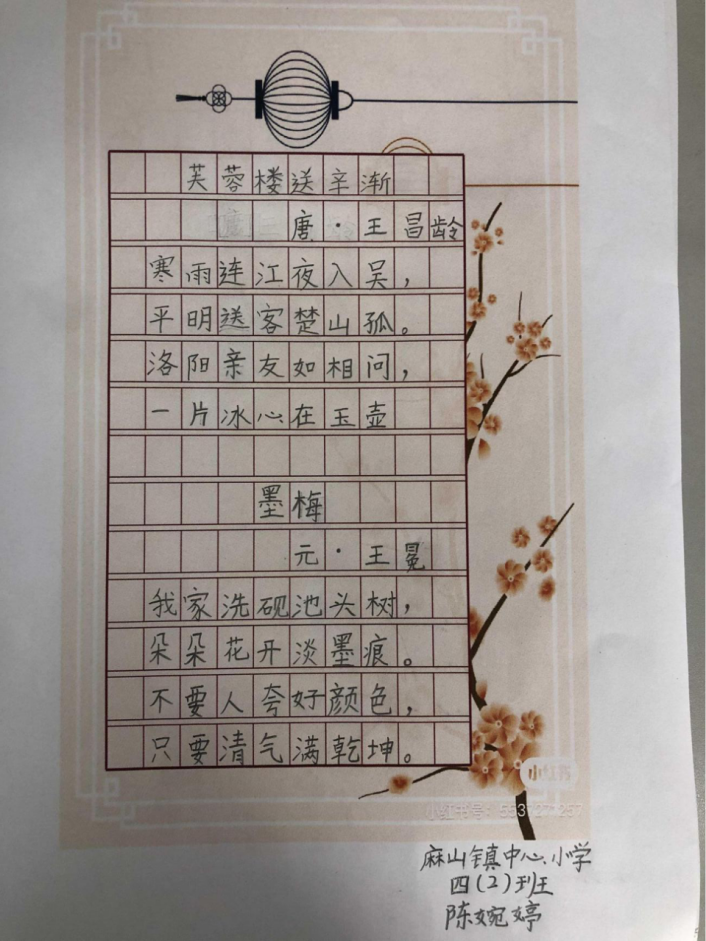 芙蓉楼送辛渐
唐·王昌龄
寒雨连江夜入吴，
平明送客楚山孤。
洛阳亲友如相问，
一片冰心在玉壶
墨梅
元·王冕
我家洗砚池头树，
朵朵花开淡墨痕。
不要人夸好颜色，
只要清气满乾坤。
小红书
小红书号：553727257
麻山镇中心小学
四（2）班
陈婉婷